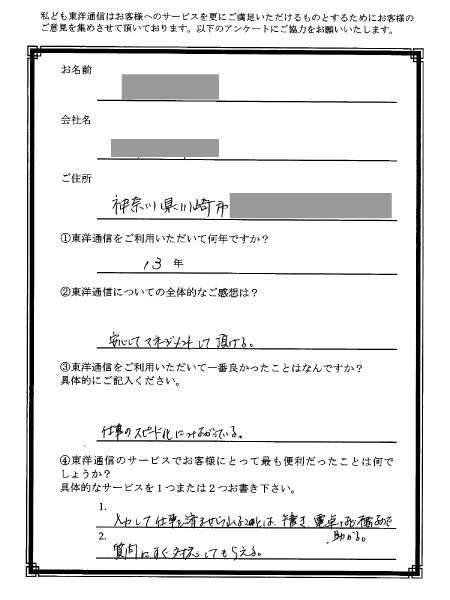 私ども東洋通信はお客様へのサービスを更にご満足いただけるものとするためにお客様の
ご意見を集めさせて頂いております。以下のアンケートにご協力をお願いいたします。
お名前
会社名
ご住所
神奈川県川崎市
①東洋通信をご利用いただいて何年ですか？
13 年
②東洋通信についての全体的なご感想は？
安心してマネジメントして頂ける。
③東洋通信をご利用いただいて一番良かったことはなんですか？
具体的にご記入ください。
仕事のスピード化につながっている。
④東洋通信のサービスでお客様にとって最も便利だったことは何で
しょうか？
具体的なサービスを１つまたは２つお書き下さい。
1.
入力して仕事を済ませられる
は、手書き、電卓
助かる。
2.
質問にすぐ対応してもらえる。